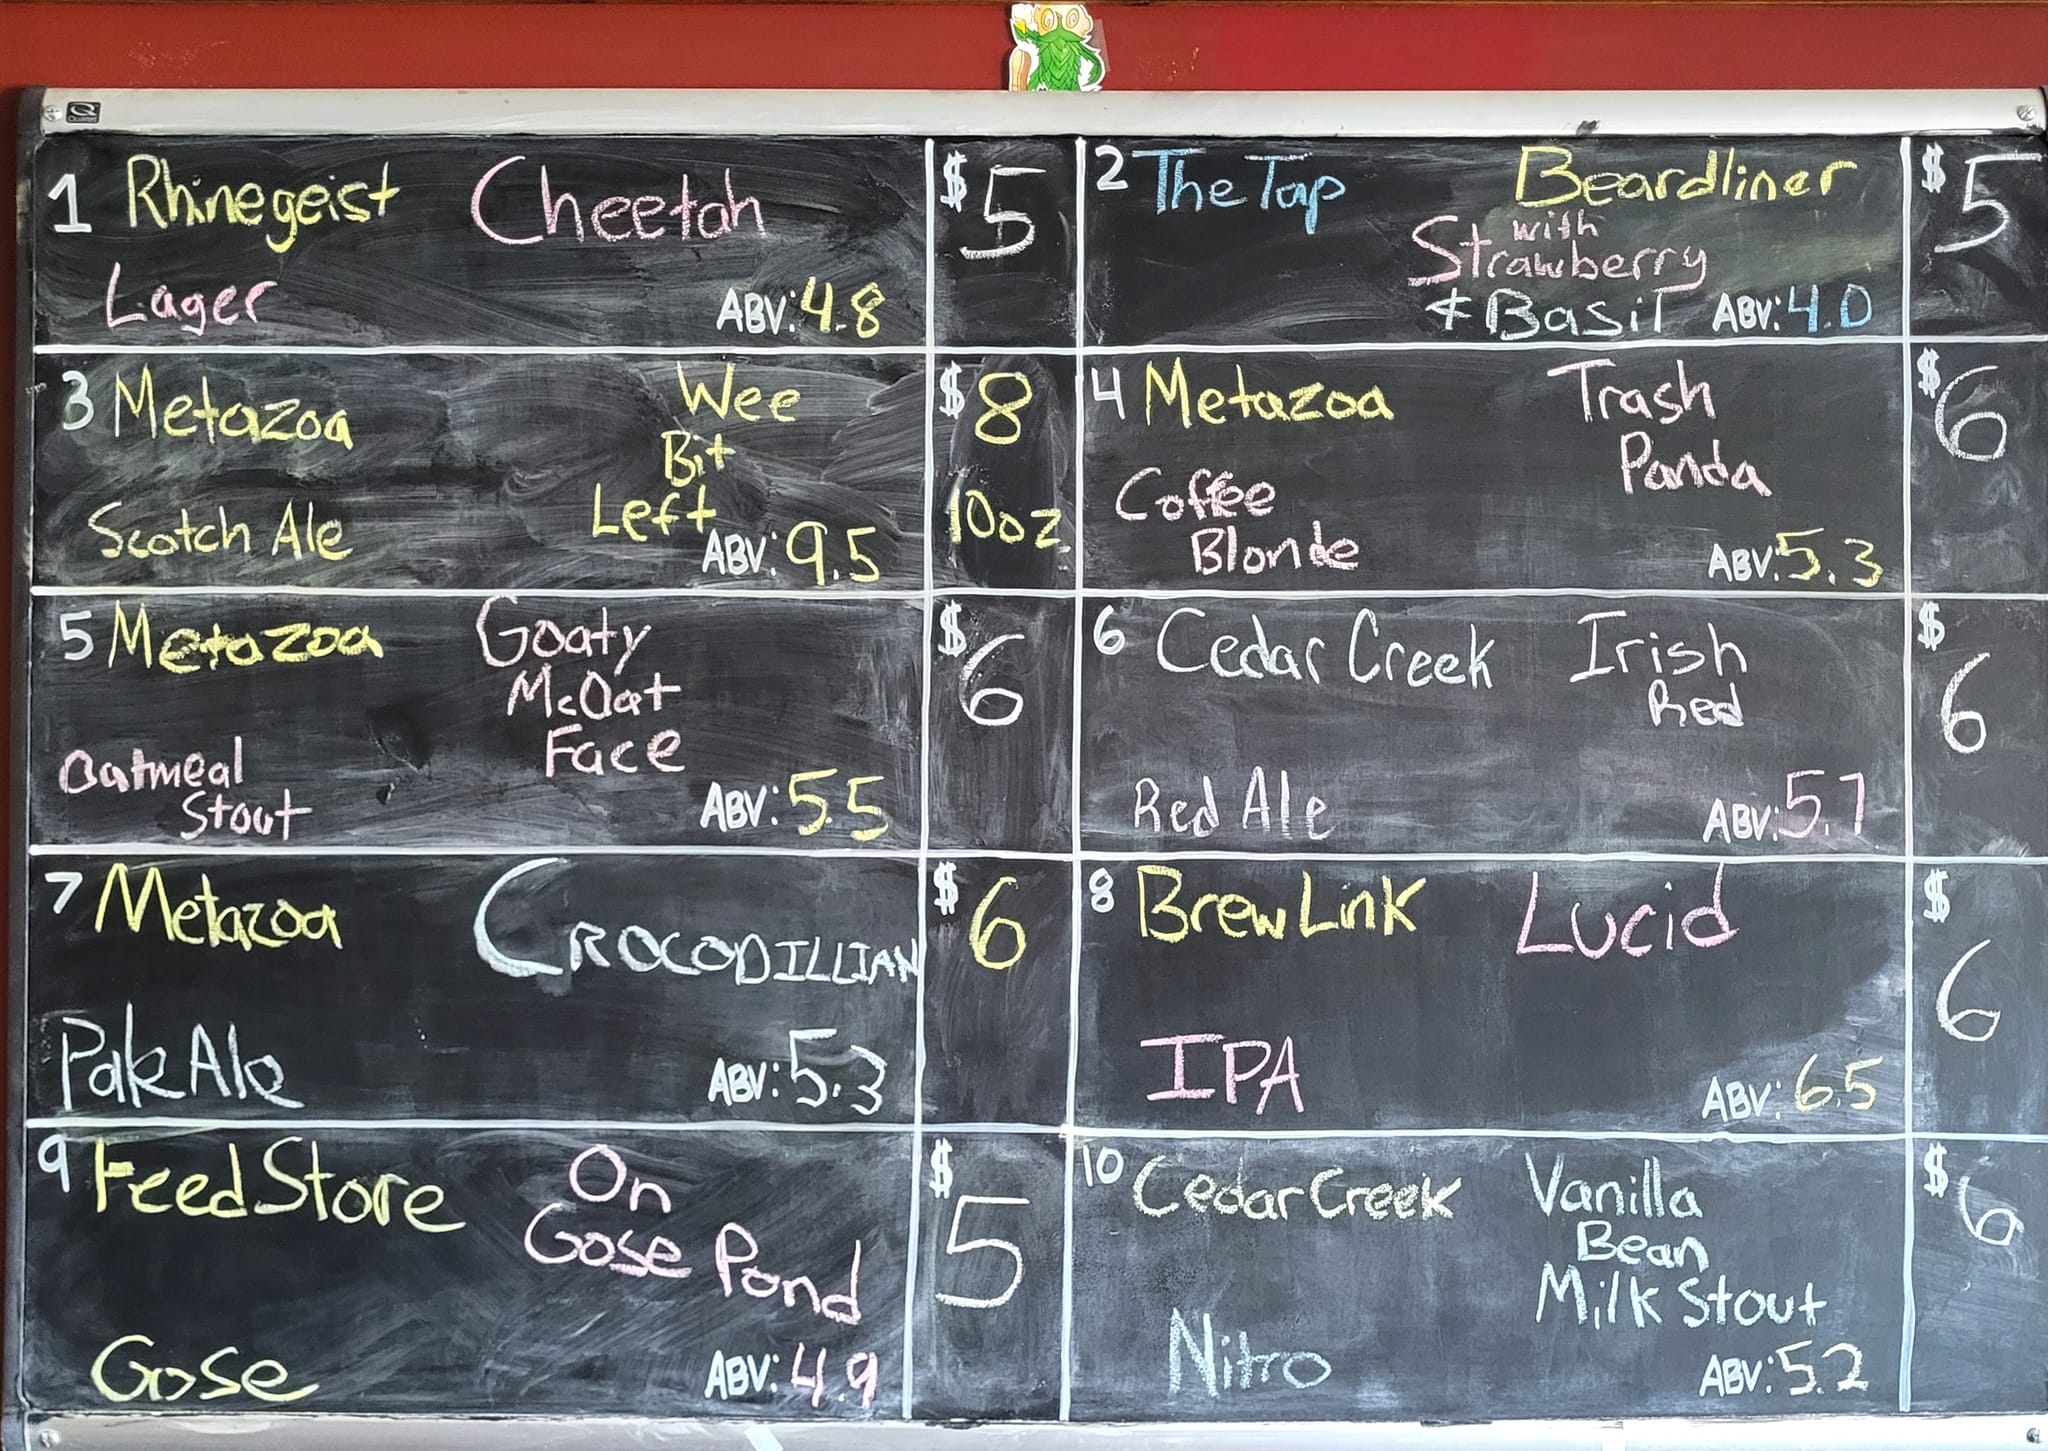 Quartet
1 Rhinegeist Cheetah $5
Lager ABV: 4.8
2 The Tap Beardliner $5
with
Strawberry
& Basil ABV: 4.0
3 Metazoa Wee $8
Bit
Scotch Ale Left 10oz
ABV: 9.5
4 Metazoa Trash $6
Panda
Coffee
Blonde ABV: 5.3
5 Metazoa Goaty $6
McOat
Face
Oatmeal
Stout ABV: 5.5
6 Cedar Creek Irish $6
Red
Red Ale ABV: 5.7
7 Metazoa CROCODILLIAN $6
Pale Ale ABV: 5.3
8 Brew Link Lucid $6
IPA ABV: 6.5
9 Feed Store On $5
Gose Pond
Gose ABV: 4.9
10 Cedar Creek Vanilla $6
Bean
Milk Stout
Nitro ABV: 5.2